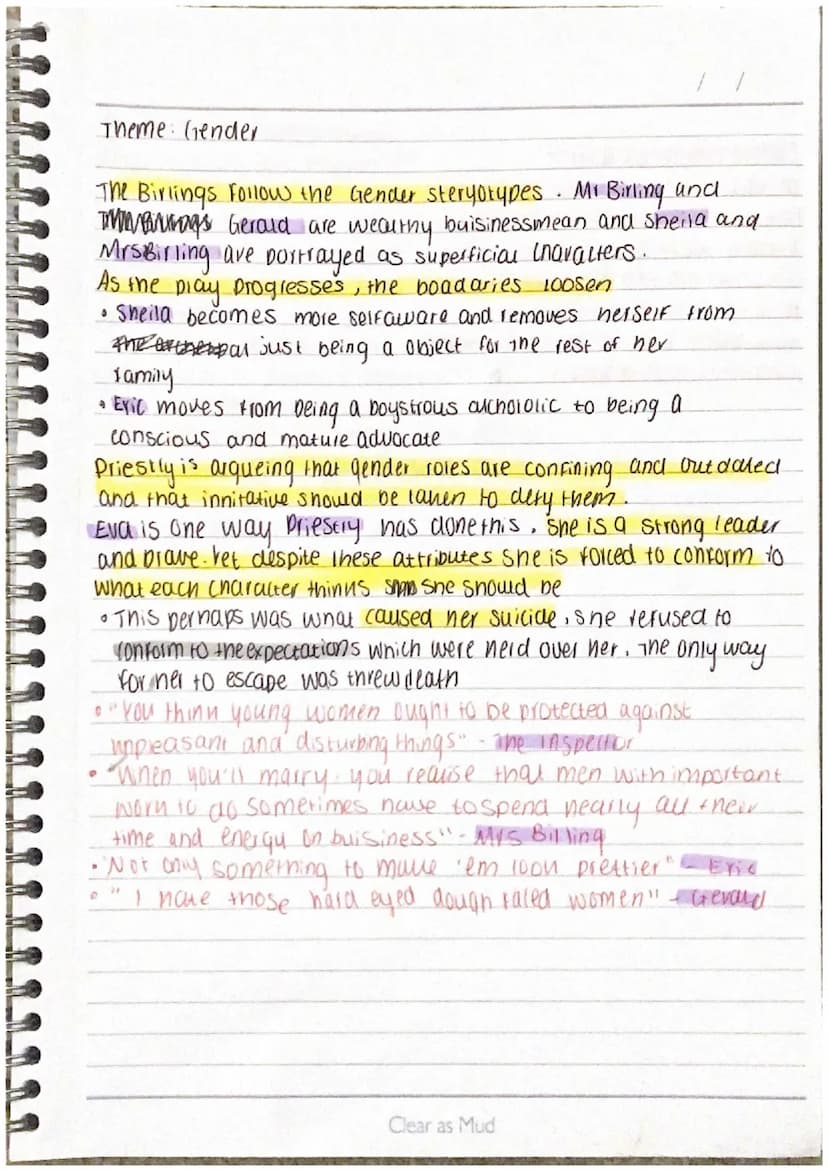 / /
Theme: Gender
The Birlings Follow the Gender steryotypes. Mr Birling and
Gerald are wealthy buisinessmean and Sheila and
Mrs Birling are portrayed as superficial characters.
As the play progresses, the boadaries loosen
• Sheila becomes more selfaware and removes herself from
just being a object for the rest of her
family
• Eric moves from being a boystrous alchololic to being a
conscious and mature advocate
Priestly is argueing that gender roles are confining and outdated
and that innitative should be taken to defy them.
Eva is one way Priestly has done this. She is a strong leader
and brave. Yet despite these attributes she is forced to conform to
what each character thinks she should be
• This perhaps was what caused her suicide, she refused to
conform to the expectations which were held over her. The only way
for her to escape was threw death
• "You think young women ought to be protected against
unpleasant and disturbing things" - The Inspector
• "When you'll marry you realise that men with important
work to do sometimes have to spend nearly all their
time and energy on buisiness" - Mrs Billing
• "Not only something to make 'em look prettier" - Eric
• "I hate those hard eyed dough faled women" - Gerald
Clear as Mud